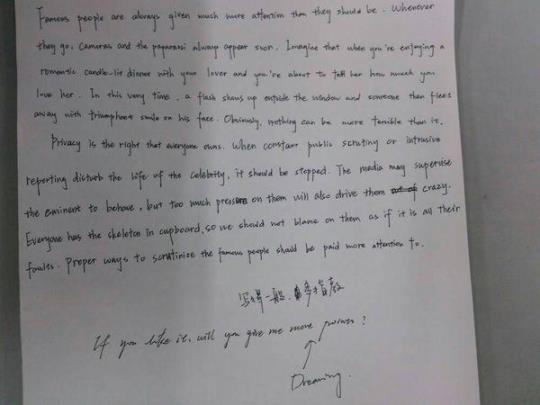 Famous people are always given much more attention than they should be. Whenever
they go, cameras and the paparazzi always appear soon. Imagine that when you're enjoying a
romantic candle-lit dinner with your lover and you're about to tell her how much you
love her. In this very time, a flash shows up outside the window and someone then flees
away with triumphant smile on his face. Obviously, nothing can be more terrible than it.
Privacy is the right that everyone owns. When constant public scrutiny or intrusive
reporting disturb the life of the celebrity, it should be stopped. The media may supervise
the eminent to behave, but too much pressure on them will also drive them crazy.
Everyone has the skeleton in cupboard, so we should not blame on them as if it is all their
foules. Proper ways to scrutinize the famous people should be paid more attention to.
写得一般，多指教
If you like it, will you give me more powers?
Dreaming.